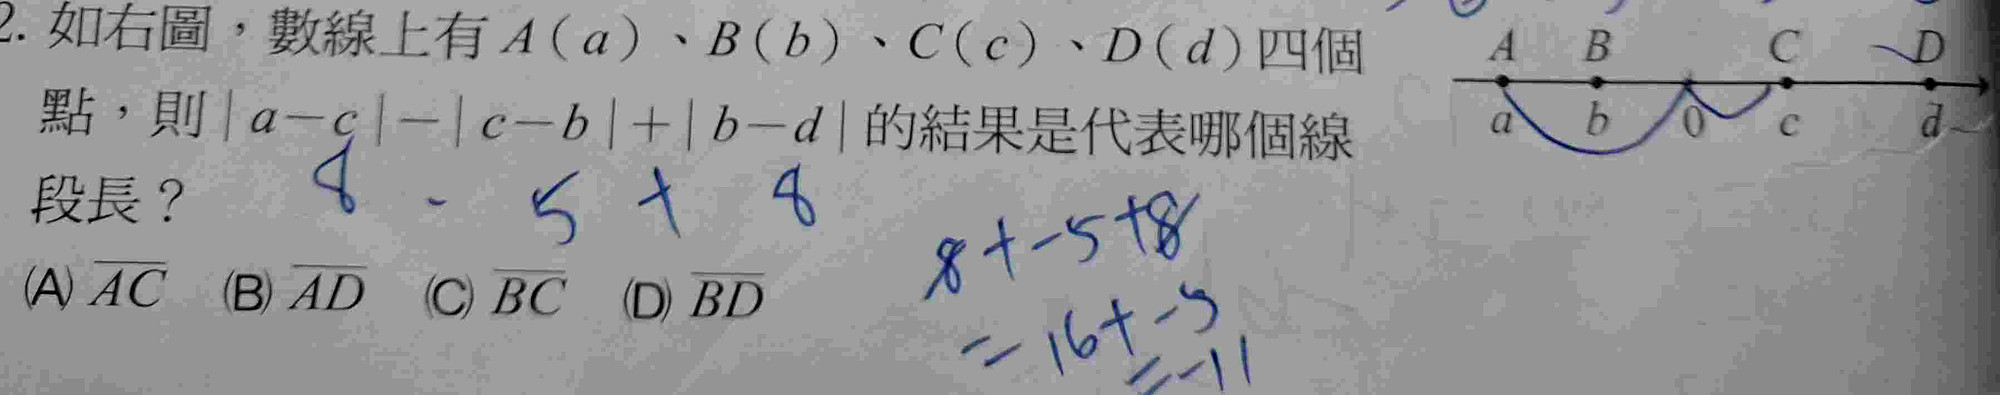 2. 如右圖，數線上有 A(a)、B(b)、C(c)、D(d)四個
點，則|a−c|−|c−b|+|b−d|的結果是代表哪個線
段長？
8 - 5 + 8
(A) AC (B) AD (C) BC (D) BD
A B C D
a b 0 c d
8+-5+8
=16+-5
=-11